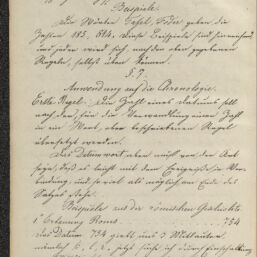 Beispiele.
Die Wörter Tafel, Feder geben die
Zahlen 185, 814. Diese Beispiele sind hinreichend
und jeder wird sich nach den oben gegebenen
Regeln, selbst üben können.
§ 7.
Anwendung auf die Chronologie.
Erste Regel. Die Zahl eines Datums soll
nach der, für die Verwandlung einer Zahl
in ein Wort, oben beschriebenen Regel
übersetzt werden.
Das Datumwort aber muß von der Art
sein, daß es leicht mit dem Ereigniße in Ver-
bindung, und so viel als möglich am Ende des
Satzes stehe.
Beispiele aus der römischen Geschichte.
1. Erbauung Roms. . . . 754
Das Datum 754 gibt uns 3 Mitlauter
nämlich